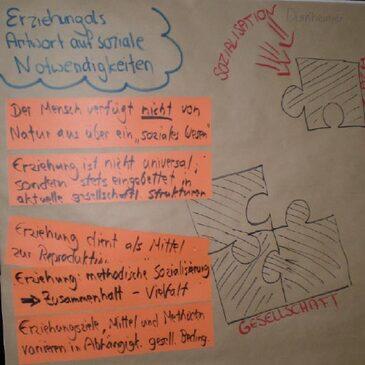 Erziehung als
Antwort auf soziale
Notwendigkeiten
SOZIALISATION
Der Mensch verfügt nicht von
Natur aus über ein „soziales Wesen"
Erziehung ist nicht universal,
sondern stets eingebettet in
aktuelle gesellschaftl. Strukturen
Erziehung dient als Mittel
zur Reproduktion
Erziehung: methodische Sozialisierung
→ Zusammenhalt - Vielfalt
GESELLSCHAFT
Erziehungsziele, Mittel und Methoden
variieren in Abhängigk. gesell. Beding.